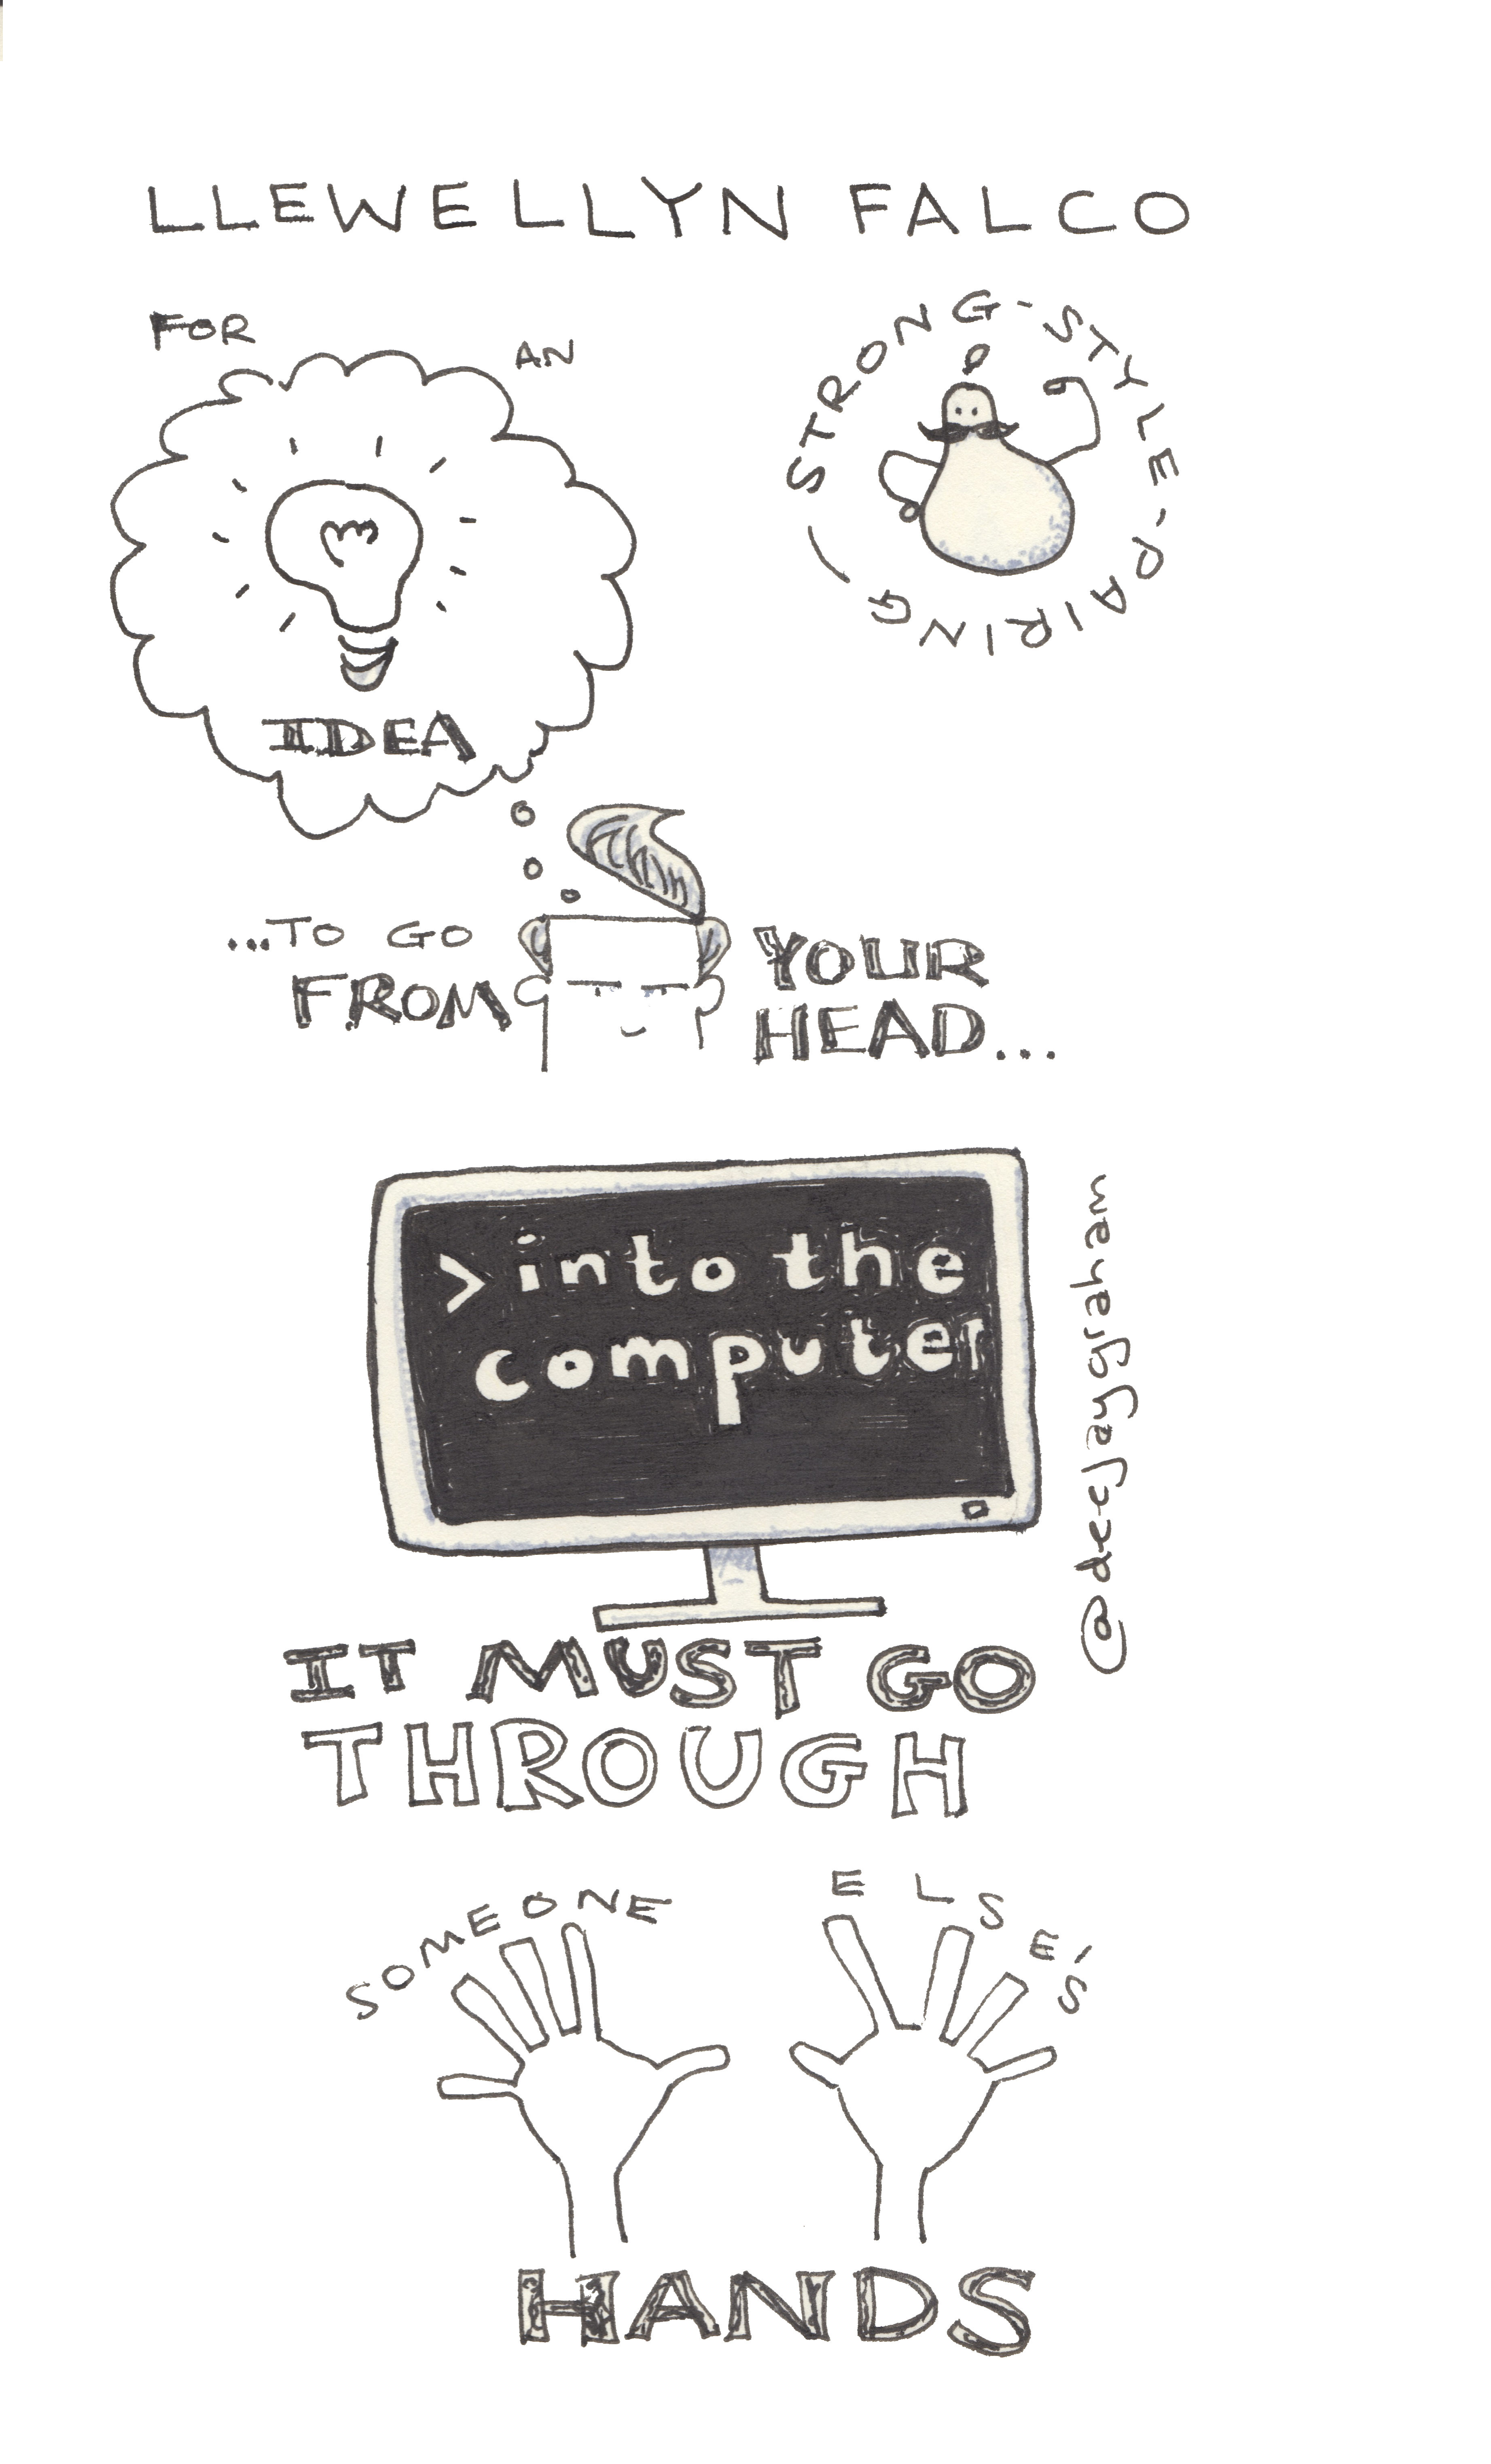 LLEWELLYN FALCO
FOR AN
IDEA
STRONG-STYLE-PAIRING
...TO GO
FROM
YOUR
HEAD...
> into the
computer
@deejaygraham
IT MUST GO
THROUGH
SOMEONE ELSE'S
HANDS